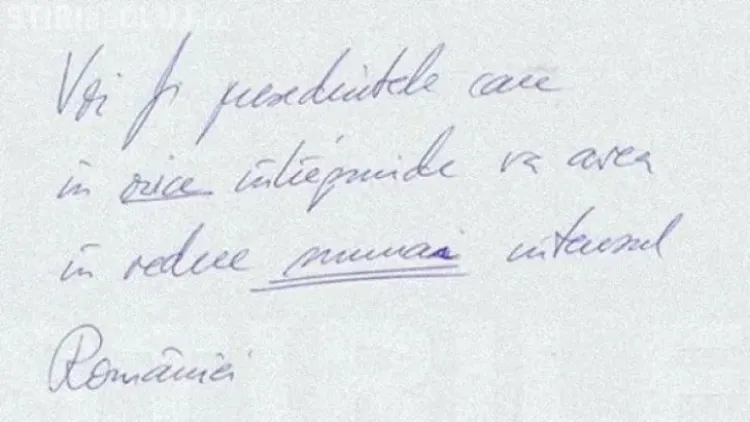 STIRI de CLUJ.ro
Voi fi presedintele care
în orice întreprinde va avea
în vedere numai interesul
României